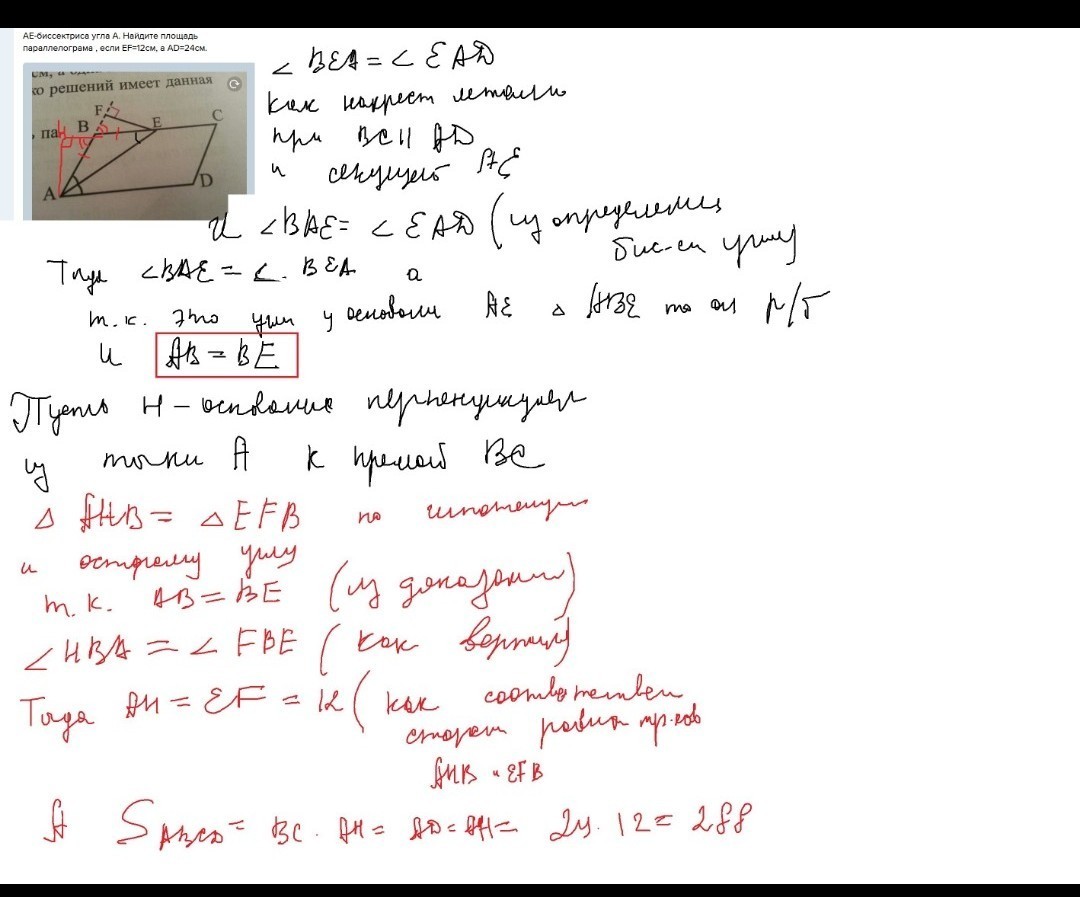 АЕ-биссектриса угла А. Найдите площадь
параллелограма , если EF=12см, а AD=24см.
ко решений имеет данная
F
E
C
B
H
A
D
∠ BEA = ∠ EAD
как накрест лежащие
при BC || AD
и секущей AE
И ∠BAE = ∠ EAD (из определения
бис-сы угла)
Тогда ∠BAE = ∠. BEA а
т.к. это углы у основания AE △ ABE то он р/б
и AB = BE
Пусть H - основание перпендикуляра
из точки A к прямой BC
△ AHB = △ EFB по гипотенузе
и острому углу
т.к. AB = BE (из доказанного)
∠HBA = ∠ FBE (как вертик)
Тогда AH = EF = 12 (как соответствен
сторон равных тр-ков
AHB и EFB
А S ABCD = BC · AH = AD = AH = 24 · 12 = 288